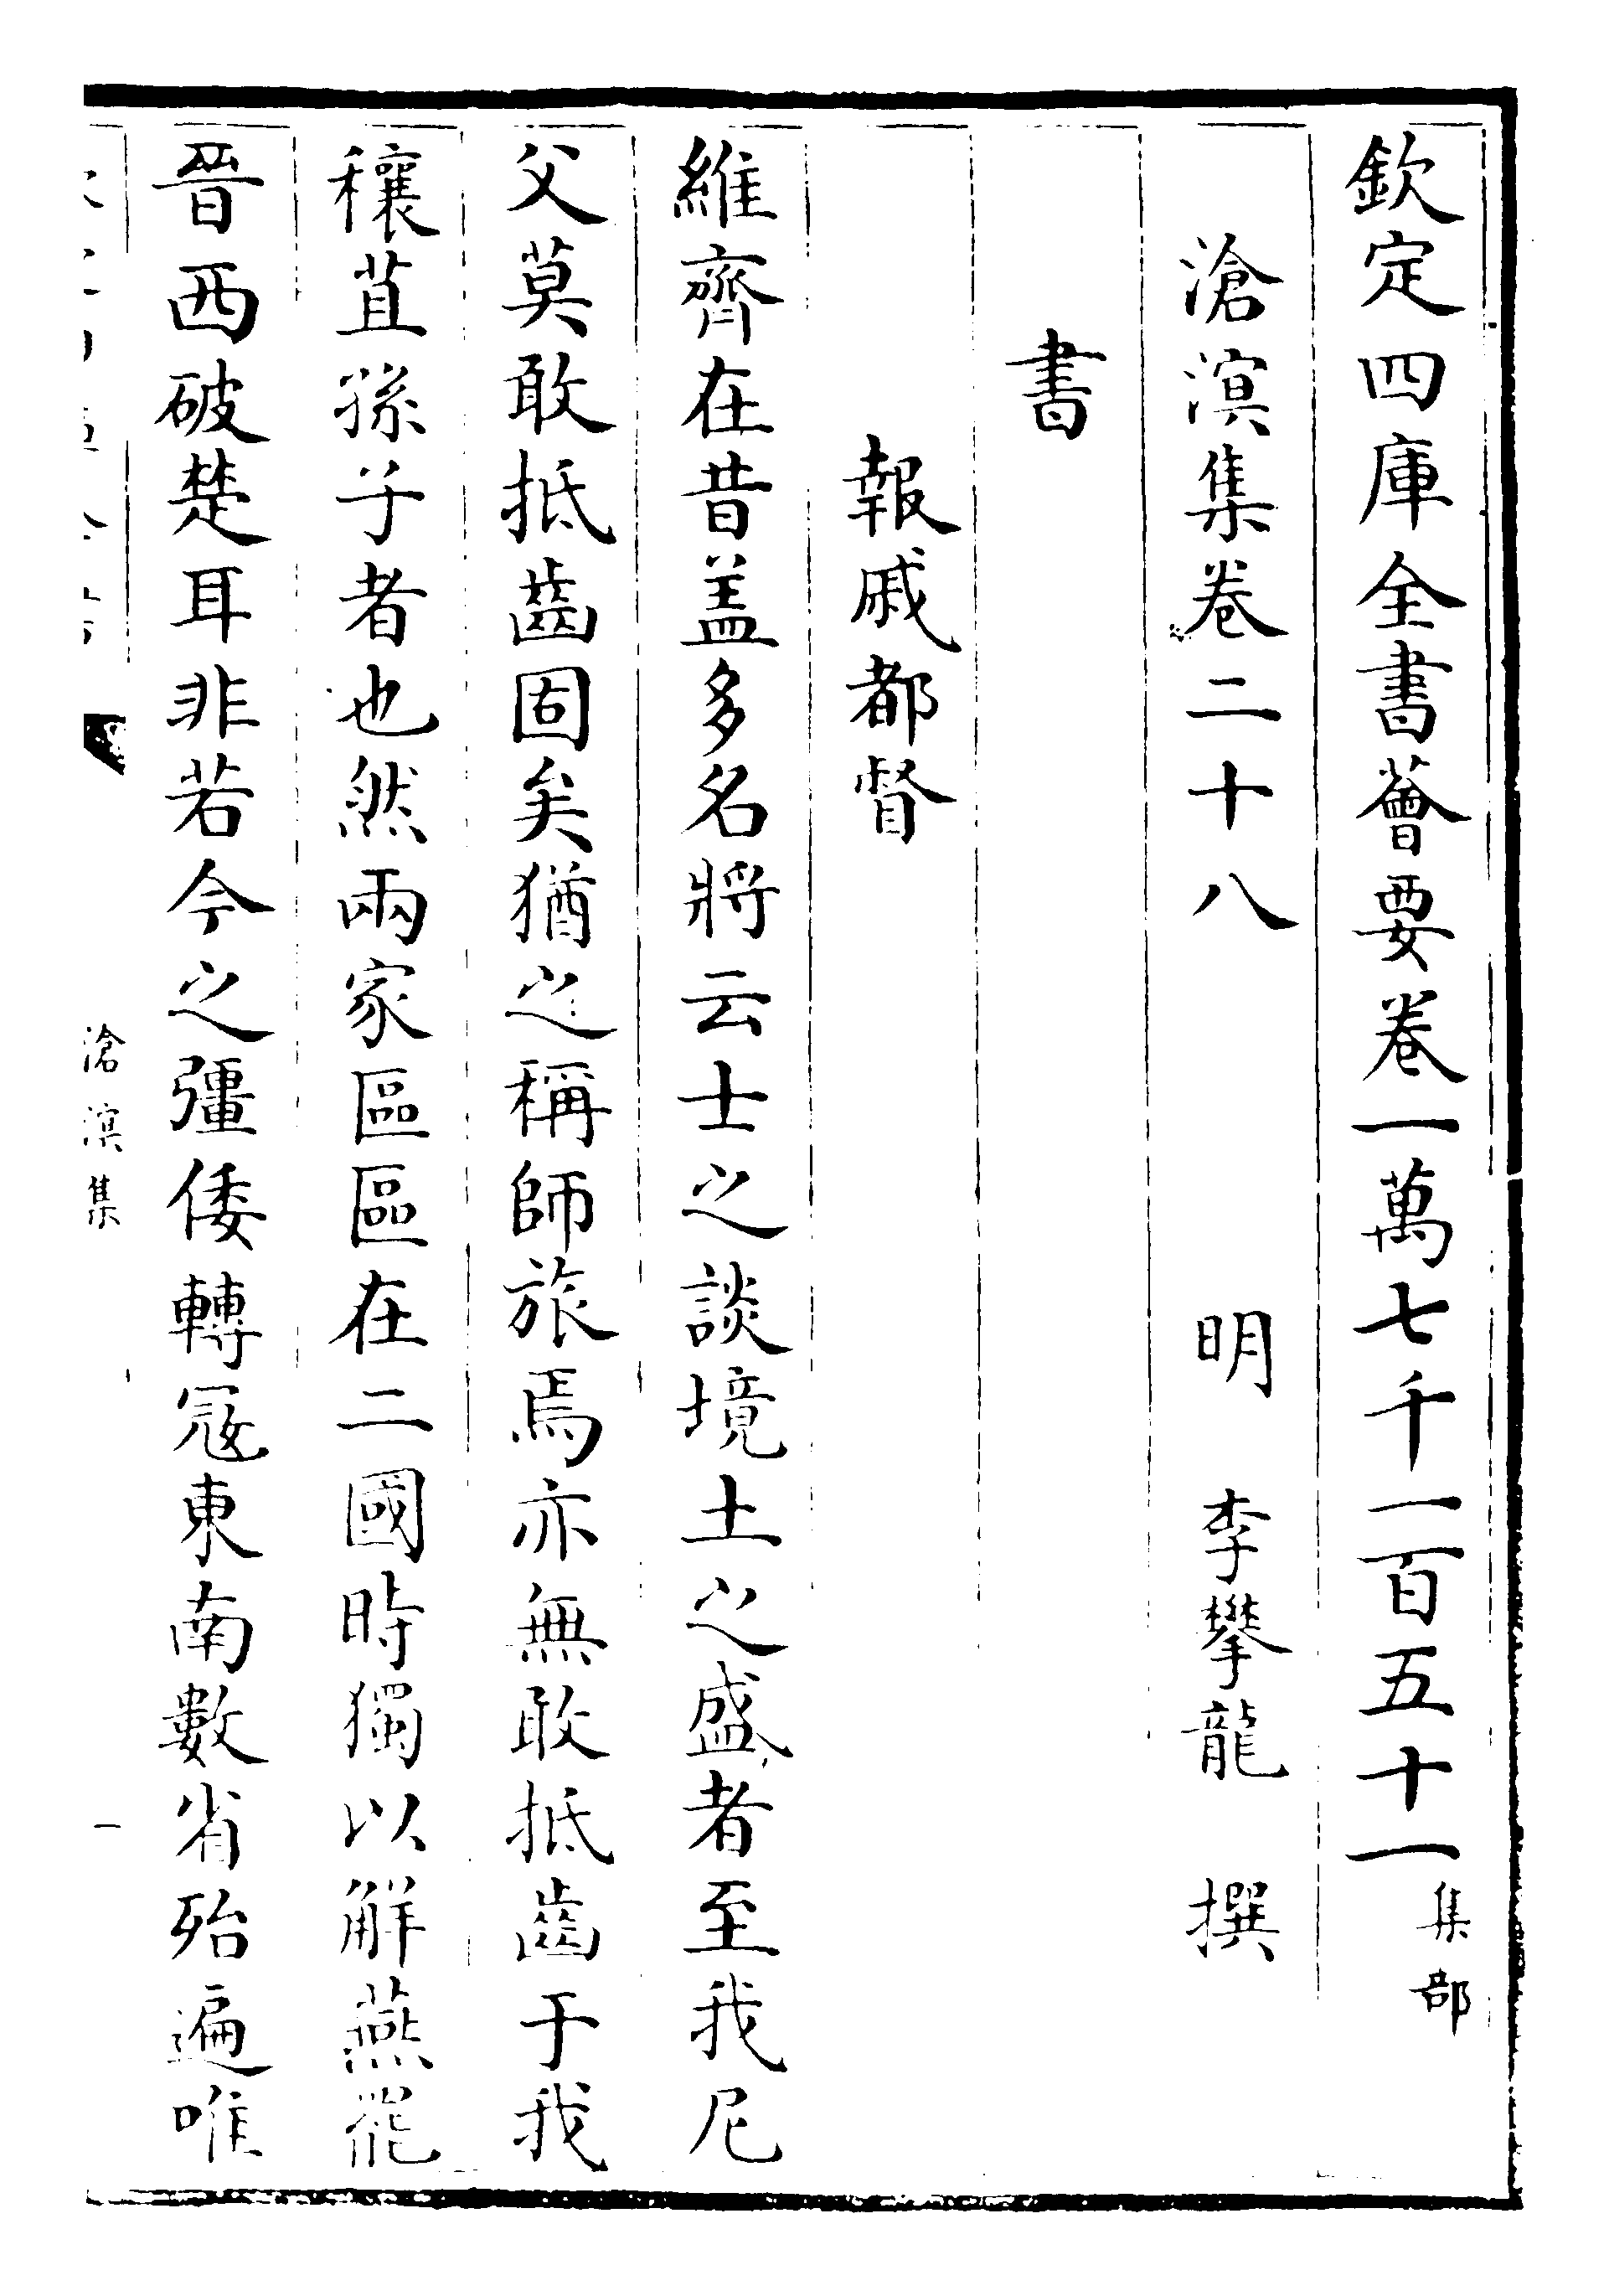 欽定四庫全書薈要卷一萬七千一百五十一集部
滄溟集卷二十八 明 李攀龍 撰
書
報戚都督
維齊在昔盖多名將云士之談境土之盛者至我尼
父莫敢抵齒固矣猶之稱師旅焉亦無敢抵齒于我
穰苴孫子者也然兩家區區在二國時獨以解燕罷
晉西破楚耳非若今之彊倭轉冦東南數省殆遍唯
滄溟集
一